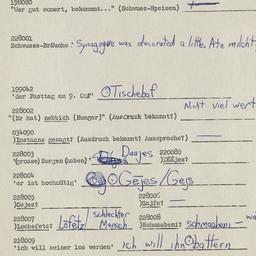 198080
"Wer gut oouert, bekommt..." (Schwues-Speisen)
228001
Schwuess-Bräuche: Synagogue was decorated a little. Ate milch
199042
'der Fasttag am 9. Oof' Tischebof
228002
"(Er hat) nebbich (Hunger)" (Ausdruck bekannt?) Nicht viel wert
034090
)Instoons gesogt? (Ausdruck bekannt? Aussprache?)
228003
'(grosse) Sorgen (haben)' Daajes
220080
)Dääjes?
228004
'er ist hochmütig' Gejes/Gejs
228005
)Gejes?
228006
)Gojfe?
228007
)Lochefets? Lofetz schlechter Mensch
228008
)Schmacheni? schmacheni –
228009
'ich will seiner los werden' ich will ihn pattern